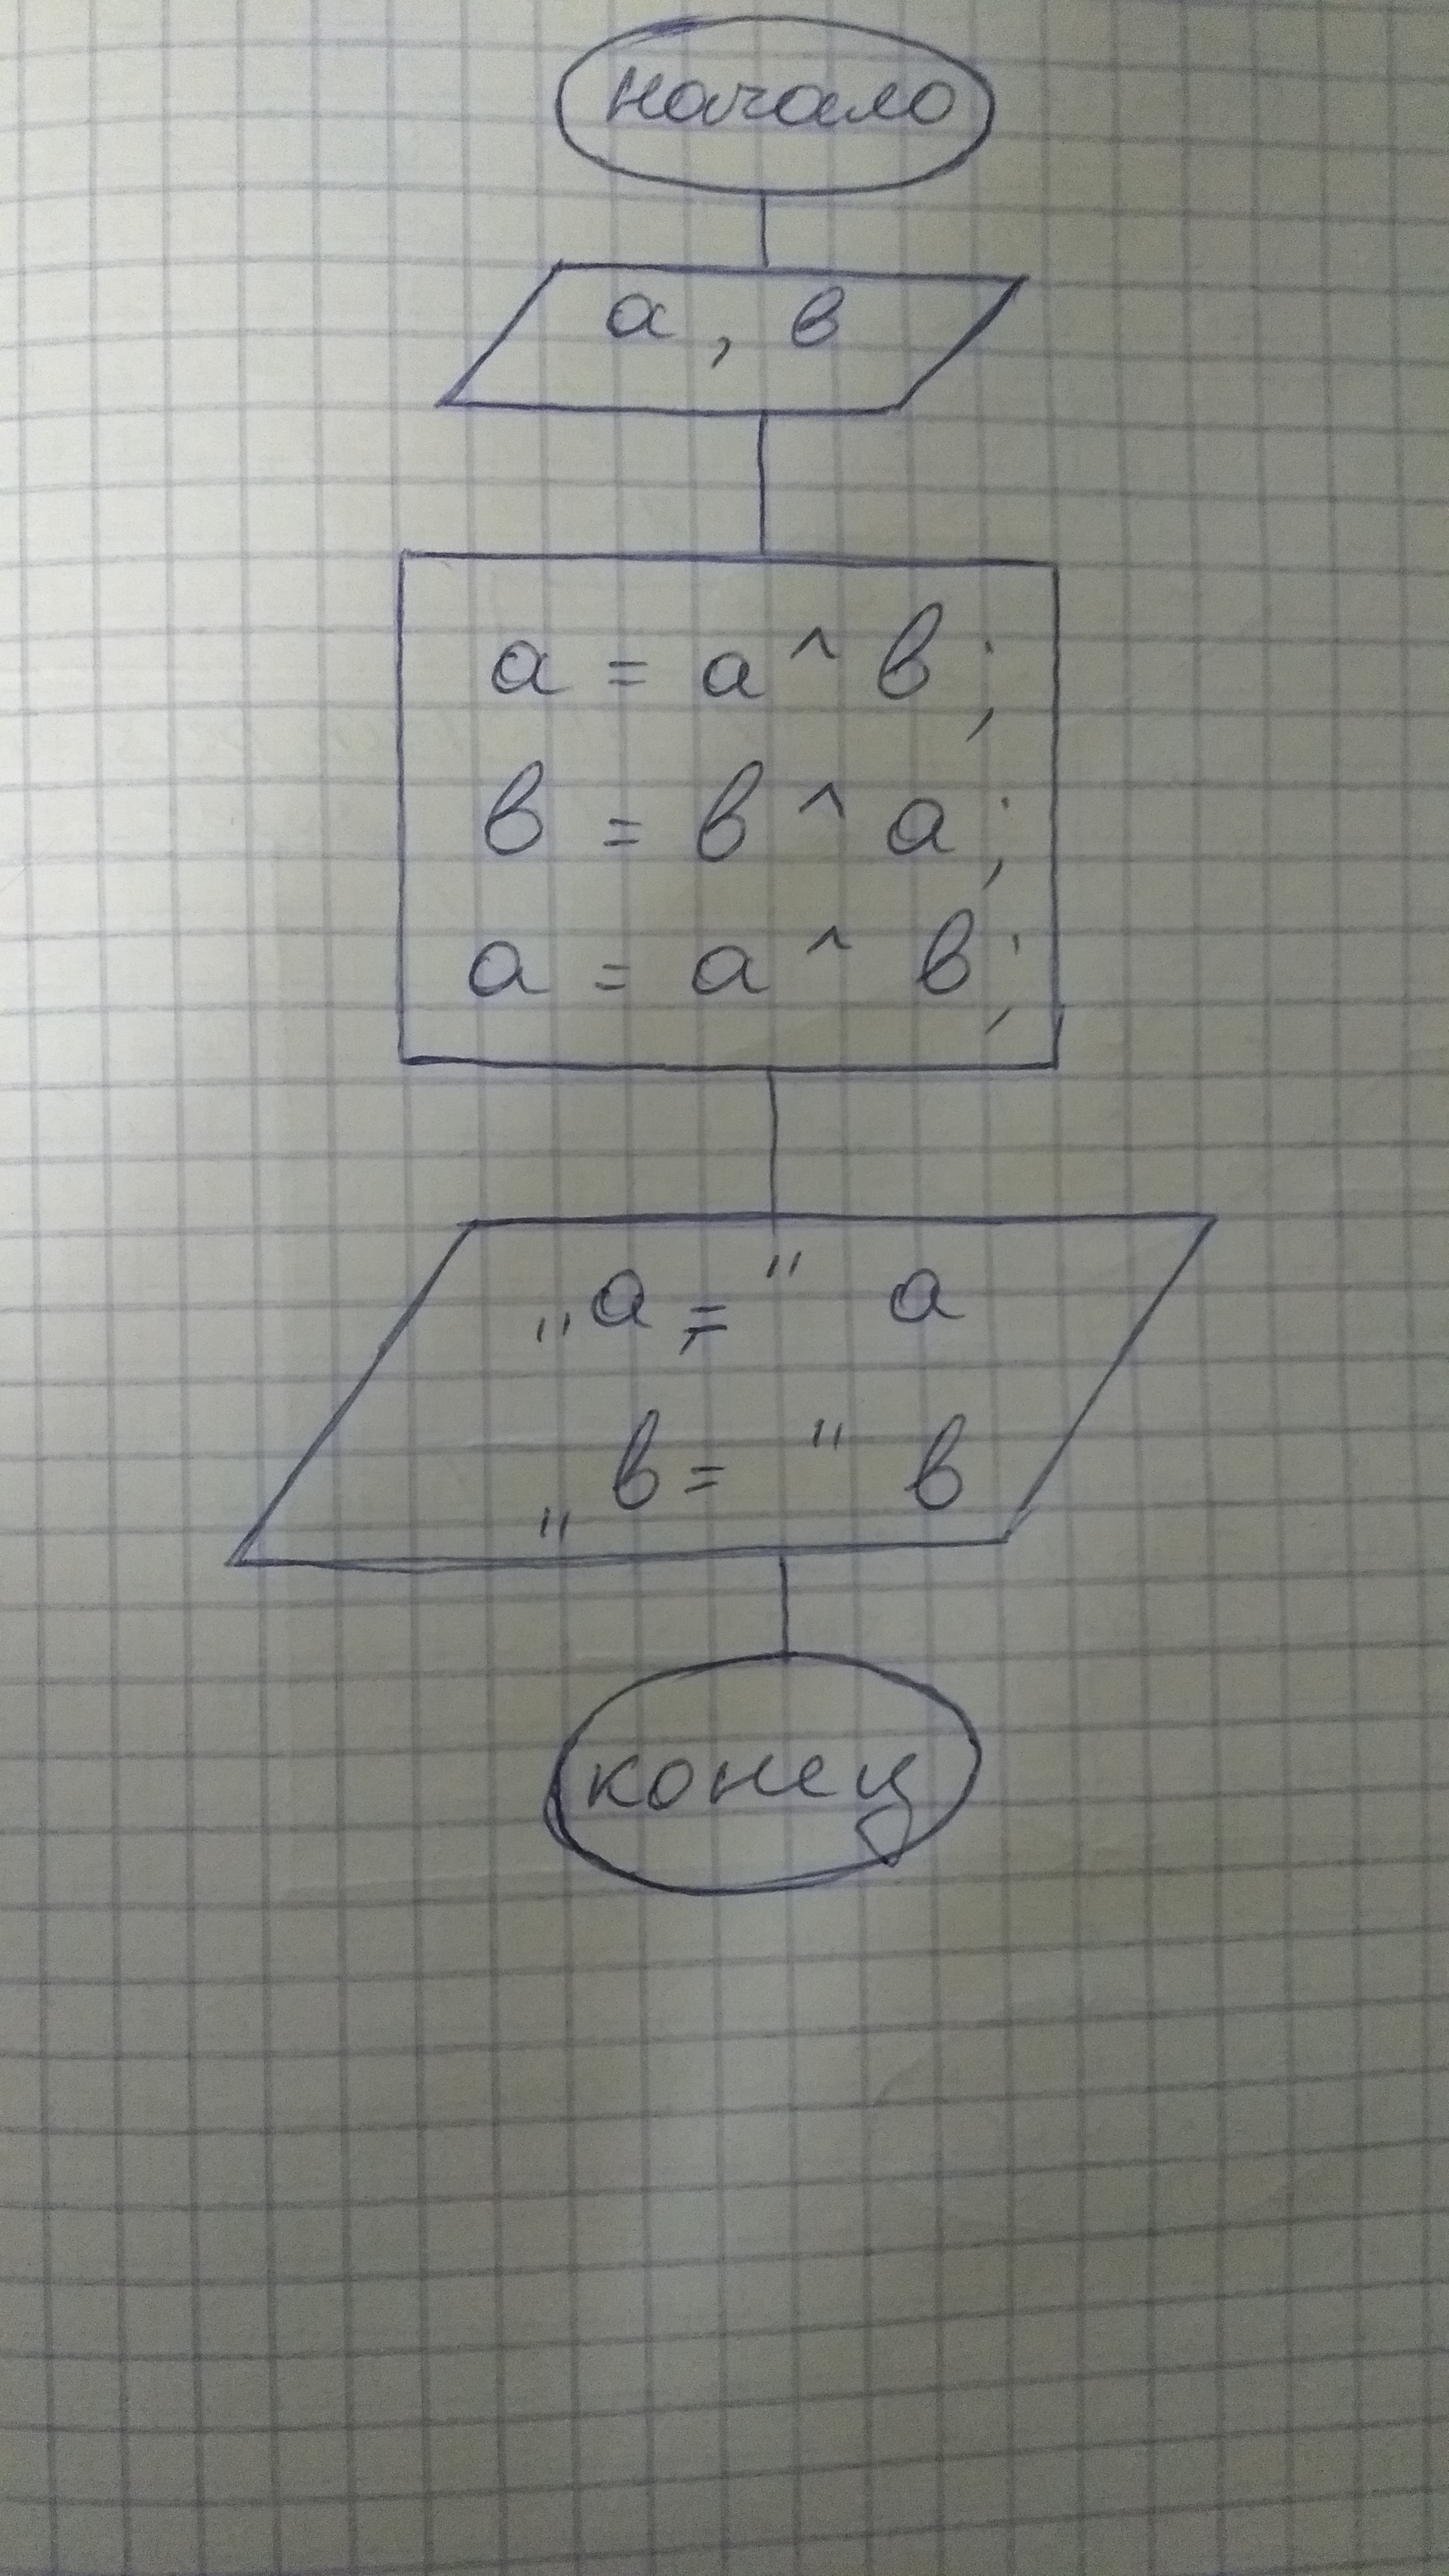 начало
а, в
а = а ^ в;
в = в ^ а;
а = а ^ в;
„а = " а
„в = " в
конец